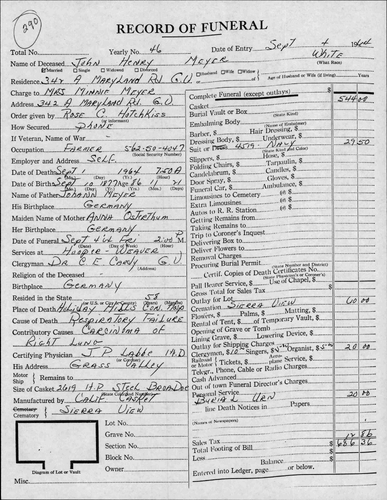 290
RECORD OF FUNERAL
Total No. Yearly No. 46 Date of Entry Sept 4 1964
Name of Deceased John Henry Meyer White
(What Race)
Married Single Widowed Divorced Husband Wife Widow of Age of Husband or Wife (if living) Years
Residence 342 A Maryland Rd G.V.
Charge to MRS Minnie Meyer
Address 342 A Maryland Rd G.V.
Order given by Rose C. Hotchkiss
(or informant)
How Secured Phone
If Veteran, Name of War
Occupation Farmer 562-50-4047
(Social Security Number)
Employer and Address Self
Date of Death Sept 1 1964 750A
Date of Birth Sept 10 1877 Age 86 11 21
Name of Father Johann Meyer
His Birthplace Germany
Maiden Name of Mother Anna Ostrethum
Her Birthplace Germany
Date of Funeral Sept 4 64 Fri 2:00 PM
Services at Hooper-Weaver
Clergyman Dr C E Cary G V
(Address)
Religion of the Deceased
Birthplace Germany
Resided in the State 58
Place of Death Holiday Hills Con. Hosp
Cause of Death Respiratory Failure
Contributory Causes Carcinoma of
Right Lung
Certifying Physician J P Labbe M.D.
His Address Grass Valley
Motor Remains to
Ship
Size of Casket 2619 H.P. Steel
Manufactured by Calif Casket
Cemetery
Crematory Sierra View
Lot No.
Grave No.
Section No.
Block No.
Owner
Diagram of Lot or Vault
Complete Funeral (except outlays) $ 544 00
Casket
Burial Vault or Box
(State Kind)
Embalming Body
Barber, $ Hair Dressing, $
Dressing Body, $ Underwear, $
Suit or Dress 4579 Navy 27 50
Slippers, $ Hose, $
Folding Chairs, $ Tarpaulin, $
Candelabrum, $ Candles, $
Door Spray, $ Gloves, $
Funeral Car, $ Ambulance, $
Limousines to Cemetery @ $
Limousines @ $
Autos to R. R. Station @ $
Getting Remains from
Taking Remains to
Trip to Coroner's Inquest
Delivering Box to
Deliver Flowers to
Removal Charges
Procuring Burial Permit
(Name Number and District)
Certif. Copies of Death Certificates No.
Pall Bearer Service, $ Use of Chapel, $
Gross Total for Sales Tax
Outlay for Lot
Cremation Sierra View 60 00
Flowers, $ Palms, $ Matting, $
Rental of Tent, $ of Temporary Vault, $
Opening of Grave or Tomb
Lining Grave, $ Lowering Device, $
Outlay for Shipping Charges
Clergymen, $ Singers, $ Organist, $ 5.00 20 00
Railroad Tickets, $ plane Service, $
Telegr., Phone, Cable or Radio Charges
Cash Advanced
Out of town Funeral Director's Charges
Personal Service
Burial Urn 20 00
line Death Notices in Papers
(Names of Newspapers)
Sales Tax 12 86
Total Footing of Bill $ 686 36
Less
Balance
Entered into Ledger, page or below.